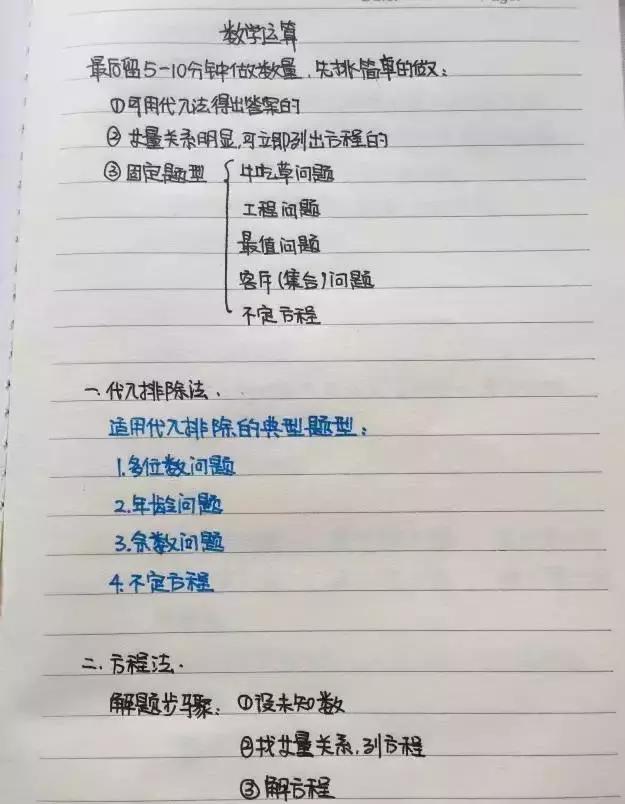 数学运算
最后留5-10分钟做数量,先挑简单的做:
①可用代入法得出答案的
②数量关系明显,可立即列出方程的
③固定题型 { 牛吃草问题
工程问题
最值问题
容斥(集合)问题
不定方程
一.代入排除法.
适用代入排除的典型题型:
1.多位数问题
2.年龄问题
3.余数问题
4.不定方程
二.方程法.
解题步骤: ①设未知数
②找数量关系,列方程
③解方程